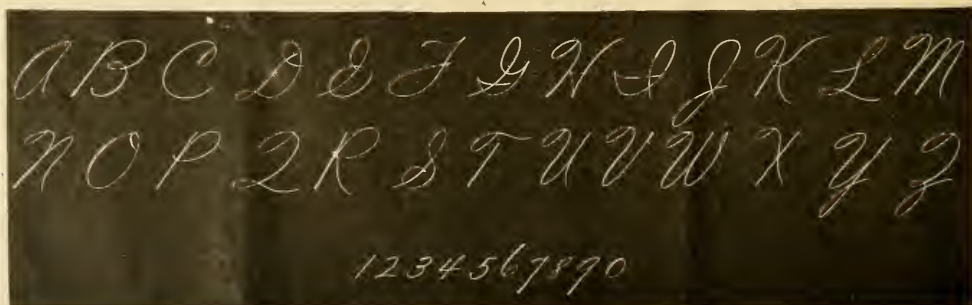 A B C D E F G H I J K L M
N O P Q R S T U V W X Y Z
1 2 3 4 5 6 7 8 9 0